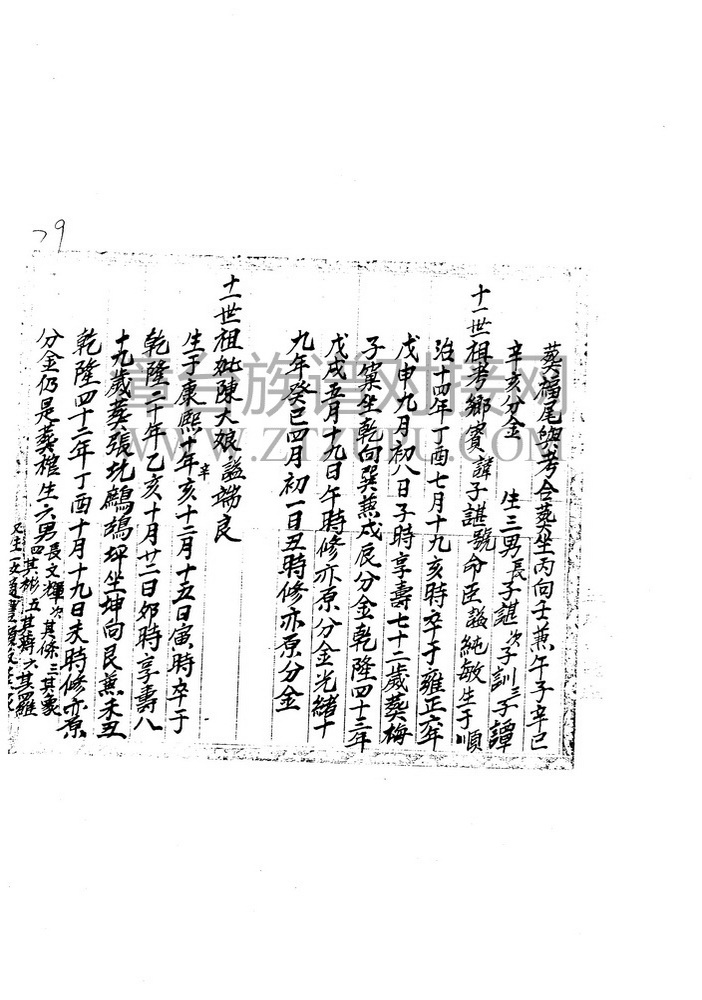 29
葬福尾與考合葬坐丙向壬兼午子辛巳
辛亥分金 生三男長子諶次子訓三子譚
十一世祖考鄉賓諱子諶號命臣謚純敏生于順
治十四年丁酉七月十九亥時卒于雍正六年
戊申九月初八日子時享壽七十二歲葬梅
子窠坐乾向巽兼戍辰分金乾隆四十三年
戊戌五月十九日午時修亦原分金光緒十
九年癸巳四月初一日丑時修亦原分金
十一世祖妣陳大娘謚端良
生于康熙十年辛亥十二月十五日寅時卒于
乾隆二十年乙亥十月廿二日卯時享壽八
十九歲葬張坑鷓鴣坪坐坤向艮兼未丑
乾隆四十二年丁酉十月十九日未時修亦原
分金仍是葬棺生六男長文輝次其保三其豪
四其彬五其 六其羅
又生五
章台族谱对接网
WWW.ZTZUPU.COM